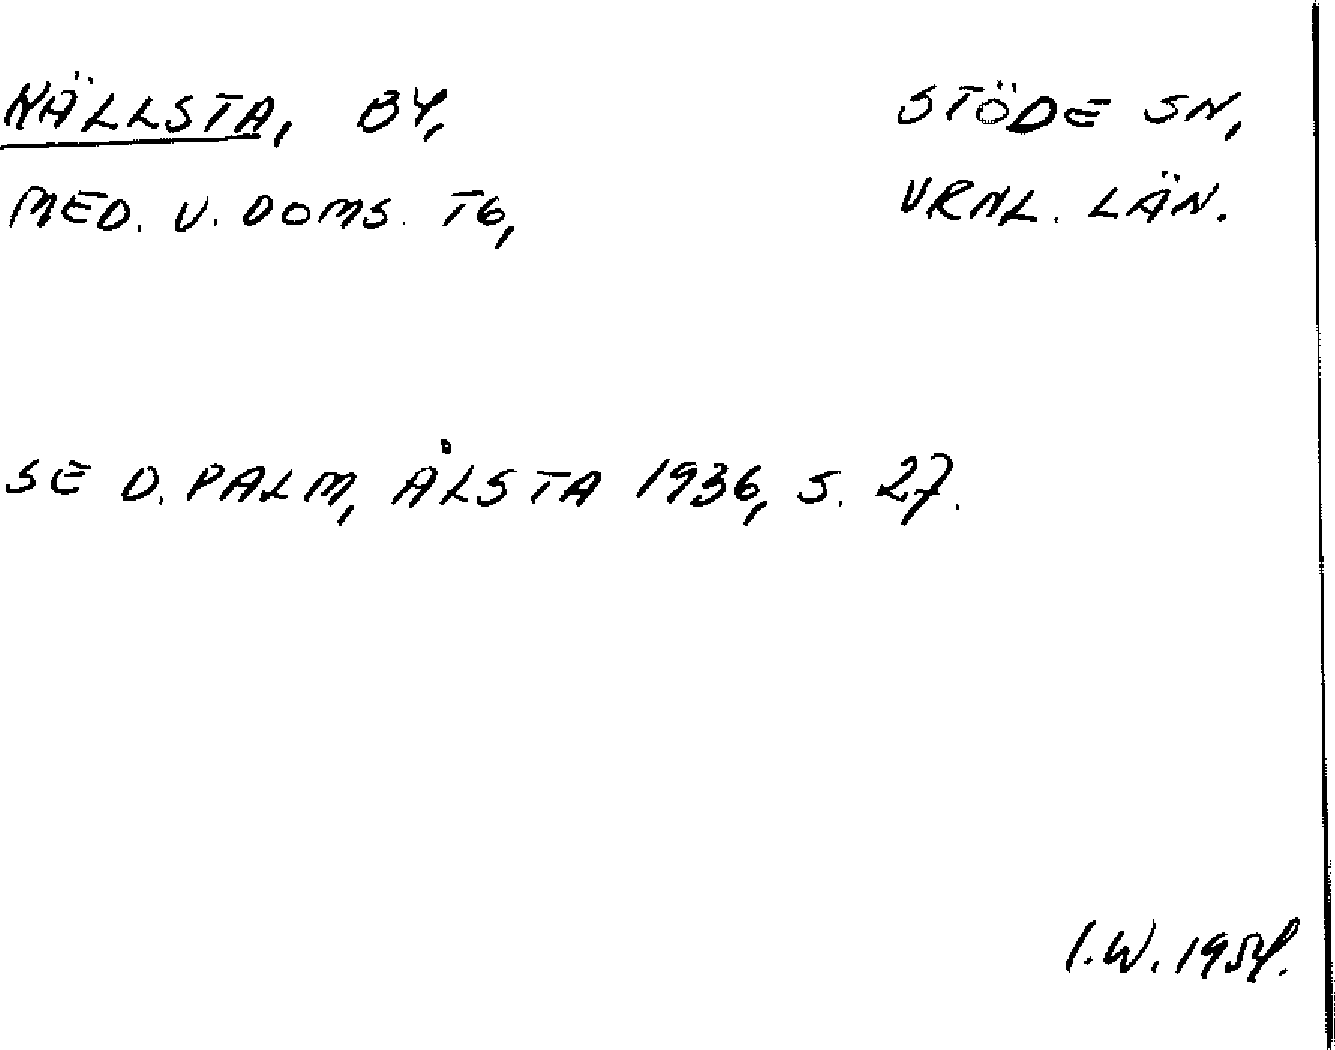 KÄLLSTA, BY, STÖDE SN,
MED. V. DOMS. TG, VRNL. LÄN.
SE D. PALM, ÅLSTA 1936, S. 27.
I.W. 1954.